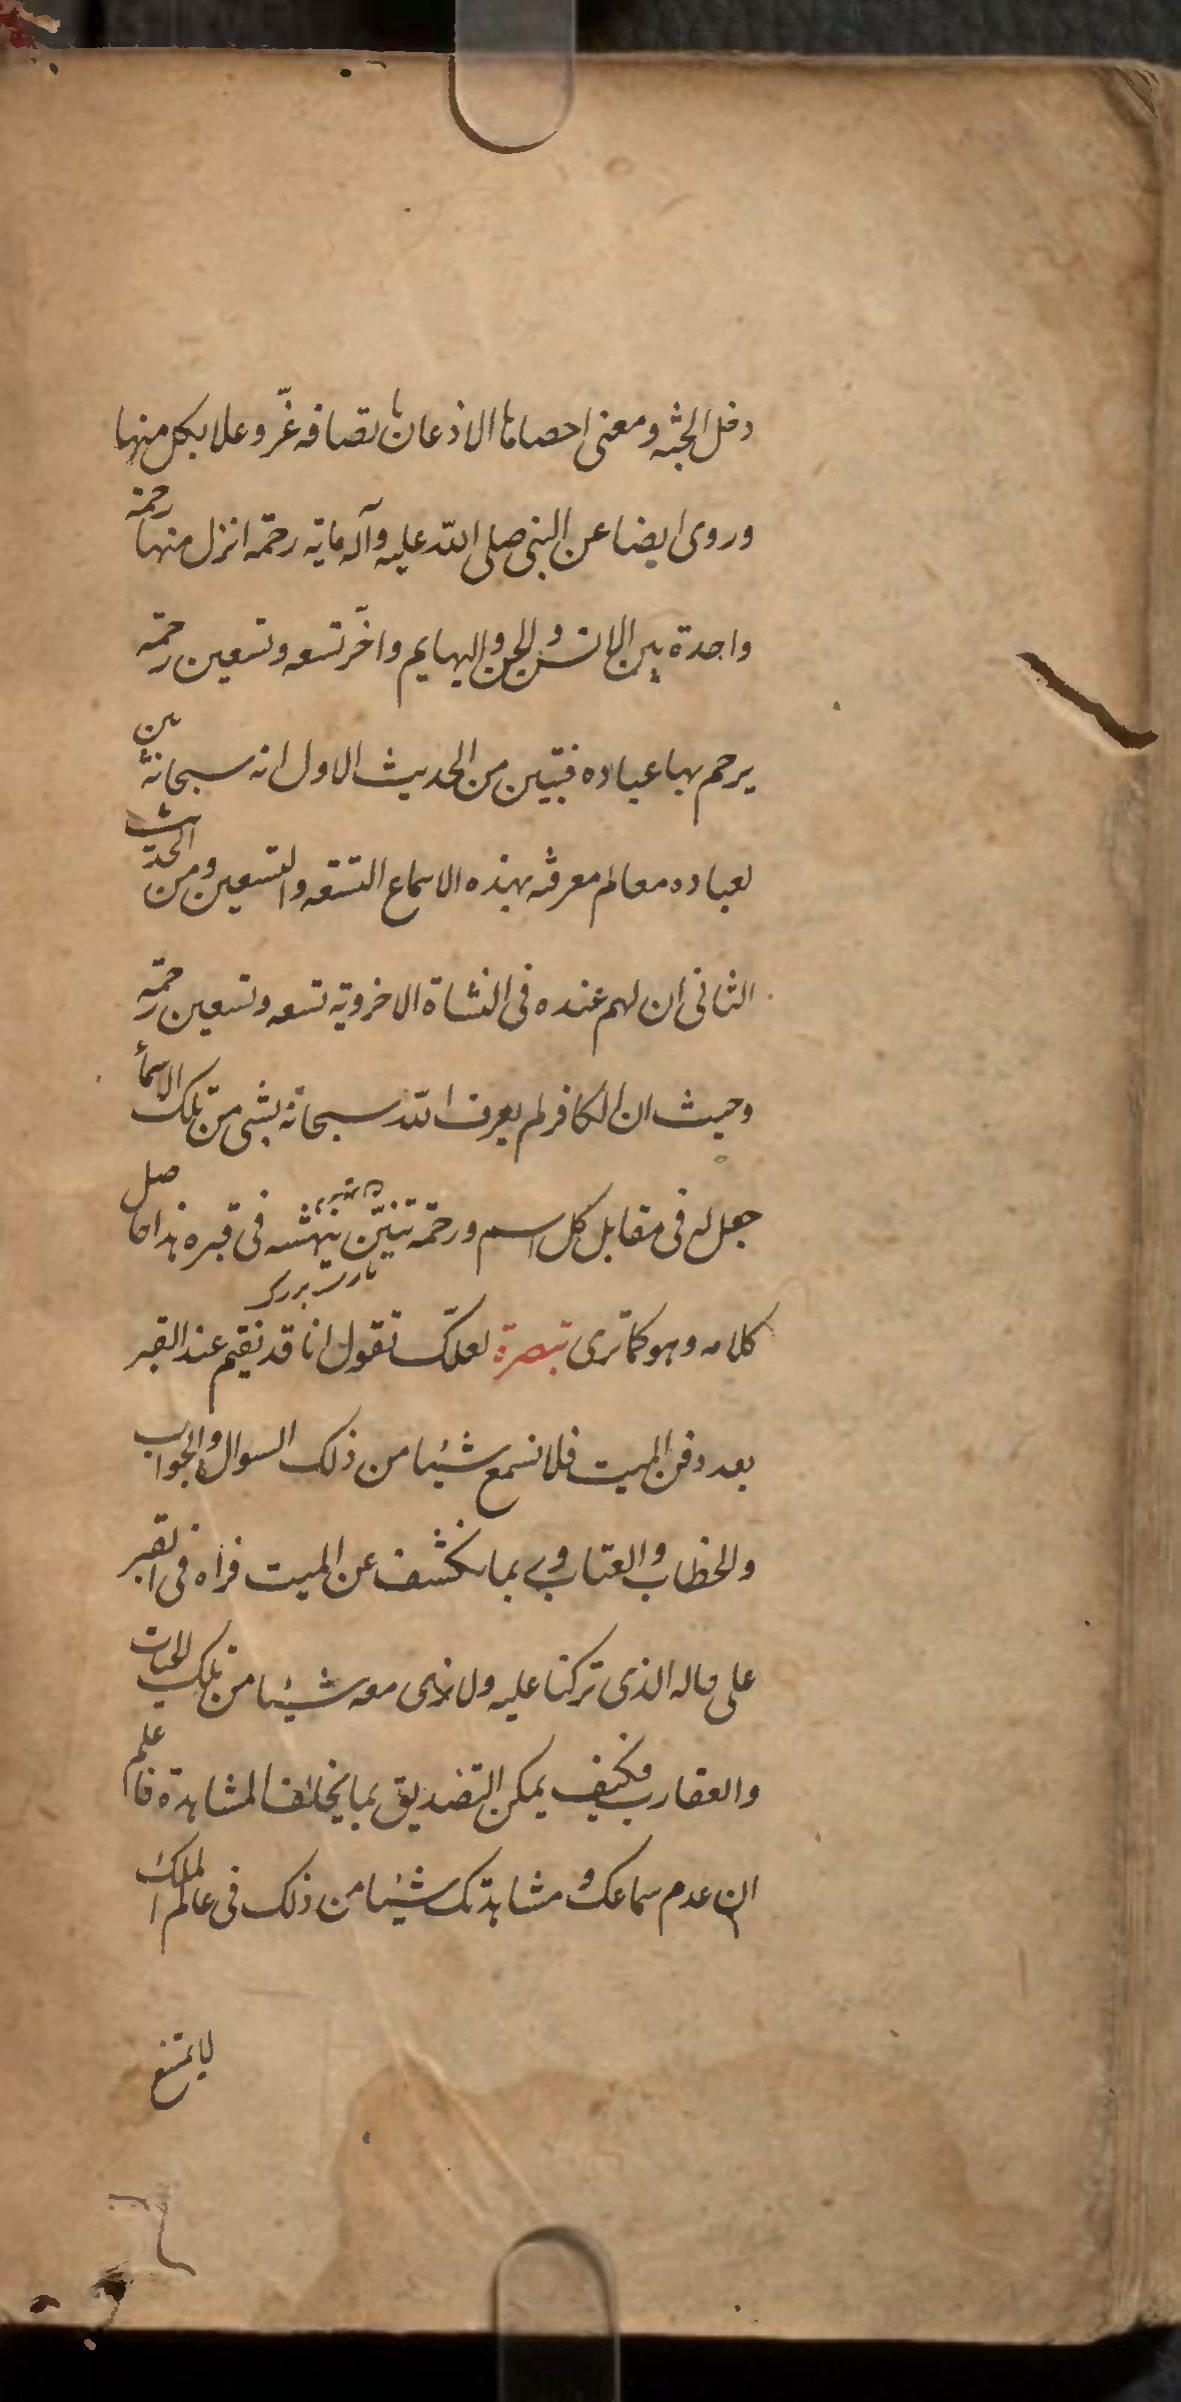 دخل الجنة ومعنى احصائها الاذعان باتصافه عزّ وعلا بكل منها
وروى ايضا عن النبى صلى الله عليه وآله مائة رحمة انزل منها رحمة
واحدة بين الانس والجن والبهايم واخّر تسعه وتسعين رحمة
يرحم بها عباده فتبين من الحديث الاول انه سبحانه بين
لعباده معالم معرفته بهذه الاسماء التسعه والتسعين ومن الحديث
الثانى ان لهم عنده فى النشاة الاخروية تسعه وتسعين رحمة
وحيث ان الكافر لم يعرف الله سبحانه بشى من تلك الاسماء
جعل له فى مقابل كل اسم ورحمة تنّين ينهشه فى قبره هذا حاصل
كلامه وهو كما ترى تبصرة لعلك تقول انا قد نقيم عند القبر
بعد دفن الميت فلا نسمع شيئا من ذلك السوال والجواب
والخطاب والعتاب وربما نكشف عن الميت فنراه فى القبر
على حاله الذى تركنا عليه ولا نرى معه شيئا من تلك الحيات
والعقارب فكيف يمكن التصديق بما يخالف المشاهدة فاعلم
ان عدم سماعك ومشاهدتك شيئا من ذلك فى عالم الملك
لا يمنع